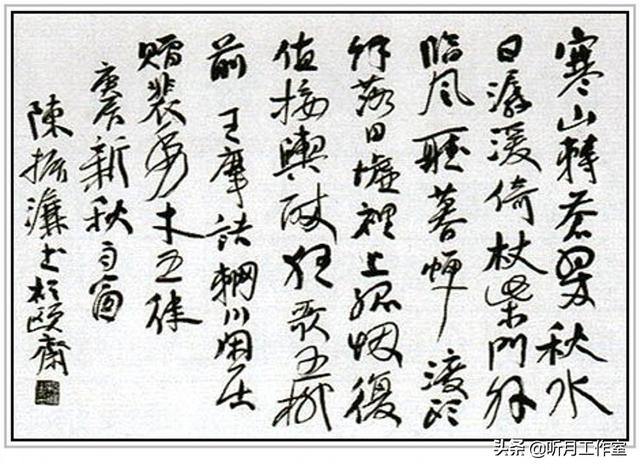 寒山轉蒼翠秋水
日潺湲倚杖柴門外
臨風聽暮蟬渡頭
餘落日墟裡上孤烟復
值接輿醉狂歌五柳
前 王摩詰輞川閑居
贈裴秀才五律
庚辰新秋雨窗
陳振濂书於頤齋
头条 @听月工作室